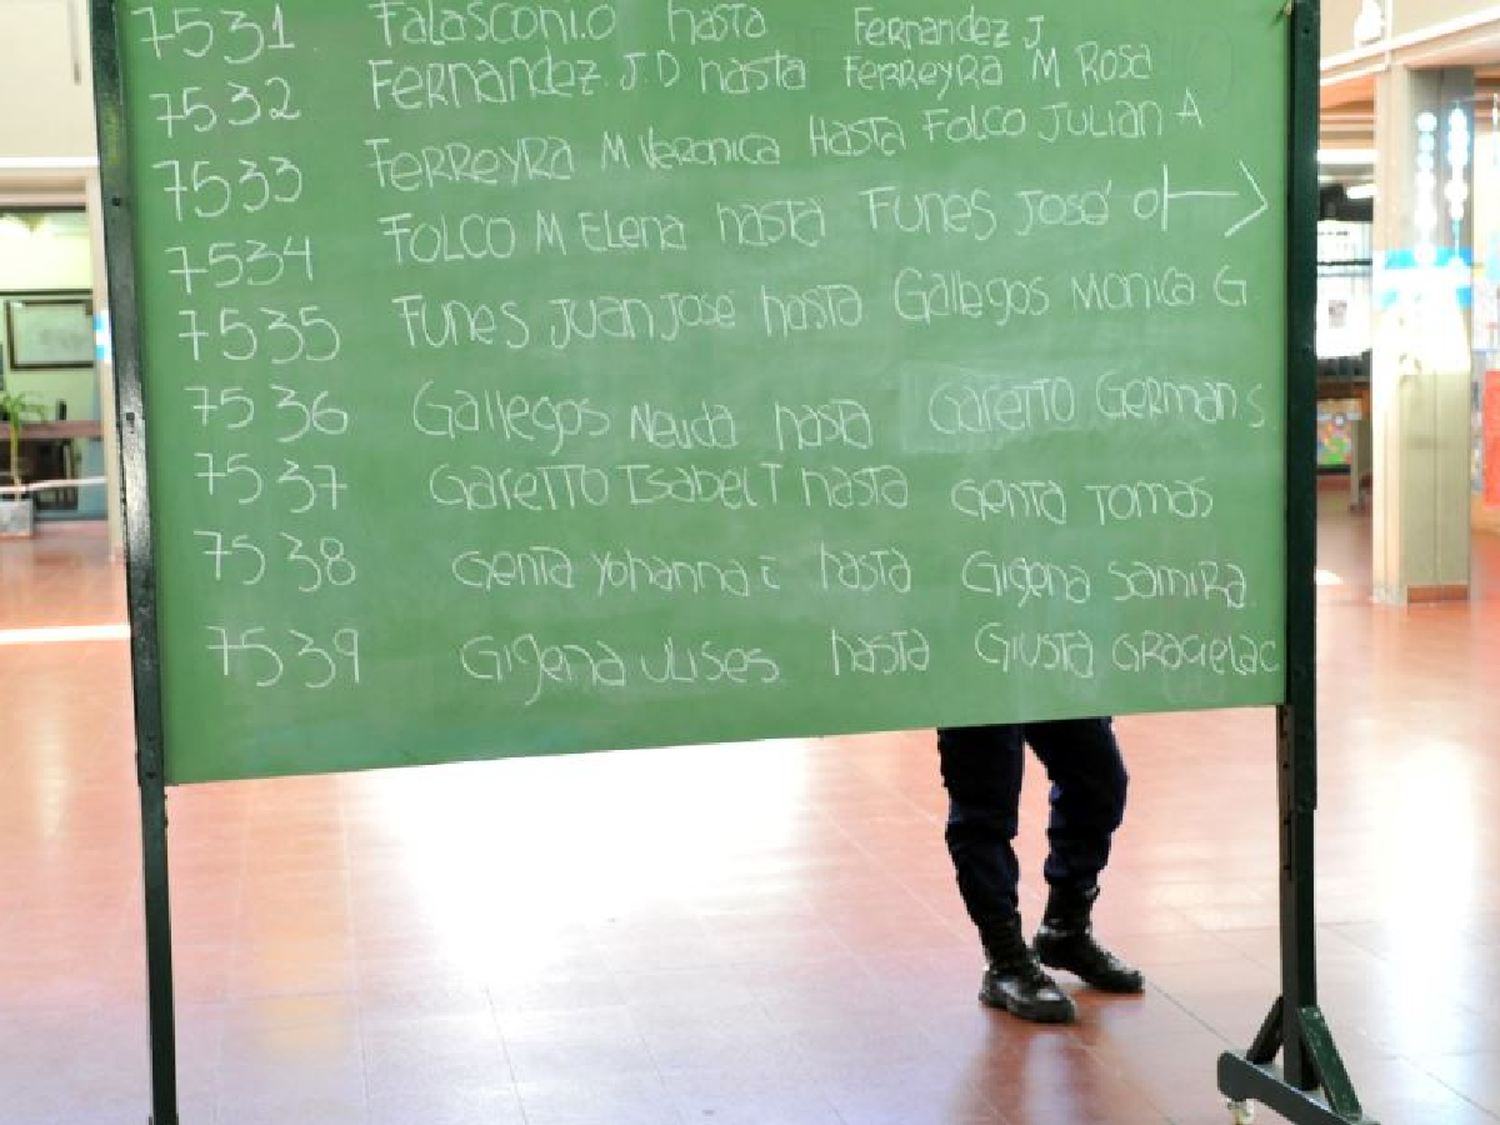 7531 Falasconi.O hasta Fernandez J
7532 Fernandez J.D hasta Ferreyra M Rosa
7533 Ferreyra M Veronica Hasta Folco Julian A
7534 Folco M Elena hasta Funes José O
7535 Funes Juan José hasta Gallegos Monica G
7536 Gallegos Neuda hasta Garetto German S
7537 Garetto Isabel T hasta Genta Tomas
7538 Genta Yohanna E hasta Gigena Samira
7539 Gigena Ulises hasta Giusta Graciela C